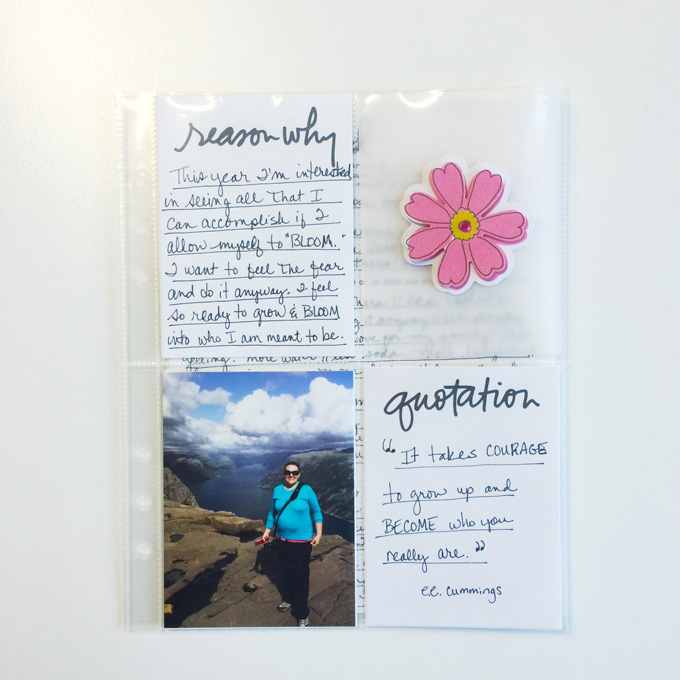 reason why
This year I'm interested
in seeing all that I
can accomplish if I
allow myself to "BLOOM."
I want to feel the fear
and do it anyway. I feel
so ready to grow & BLOOM
into who I am meant to be.
quotation
"It takes COURAGE
to grow up and
BECOME who you
really are."
e.e. cummings